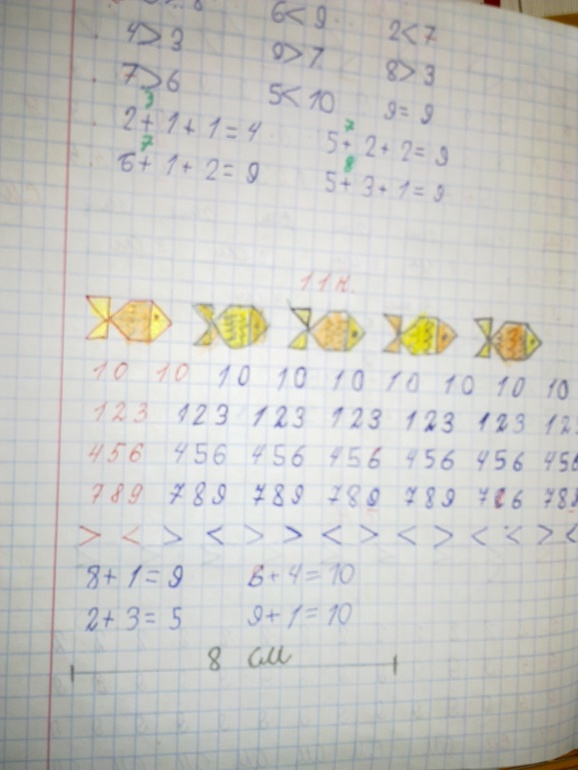 6 < 9
4 > 3 9 > 7 2 < 7
7 > 6 5 < 10 8 > 3
9 = 9
3
2 + 1 + 1 = 4
7
5 + 2 + 2 = 9
7
6 + 1 + 2 = 9
8
5 + 3 + 1 = 9
11 н.
10 10 10 10 10 10 10 10 10
123 123 123 123 123 123 12
456 456 456 456 456 456 456
789 789 789 789 789 786 789
> < > < > > < > < > < < > <
8 + 1 = 9 6 + 4 = 10
2 + 3 = 5 9 + 1 = 10
8 см